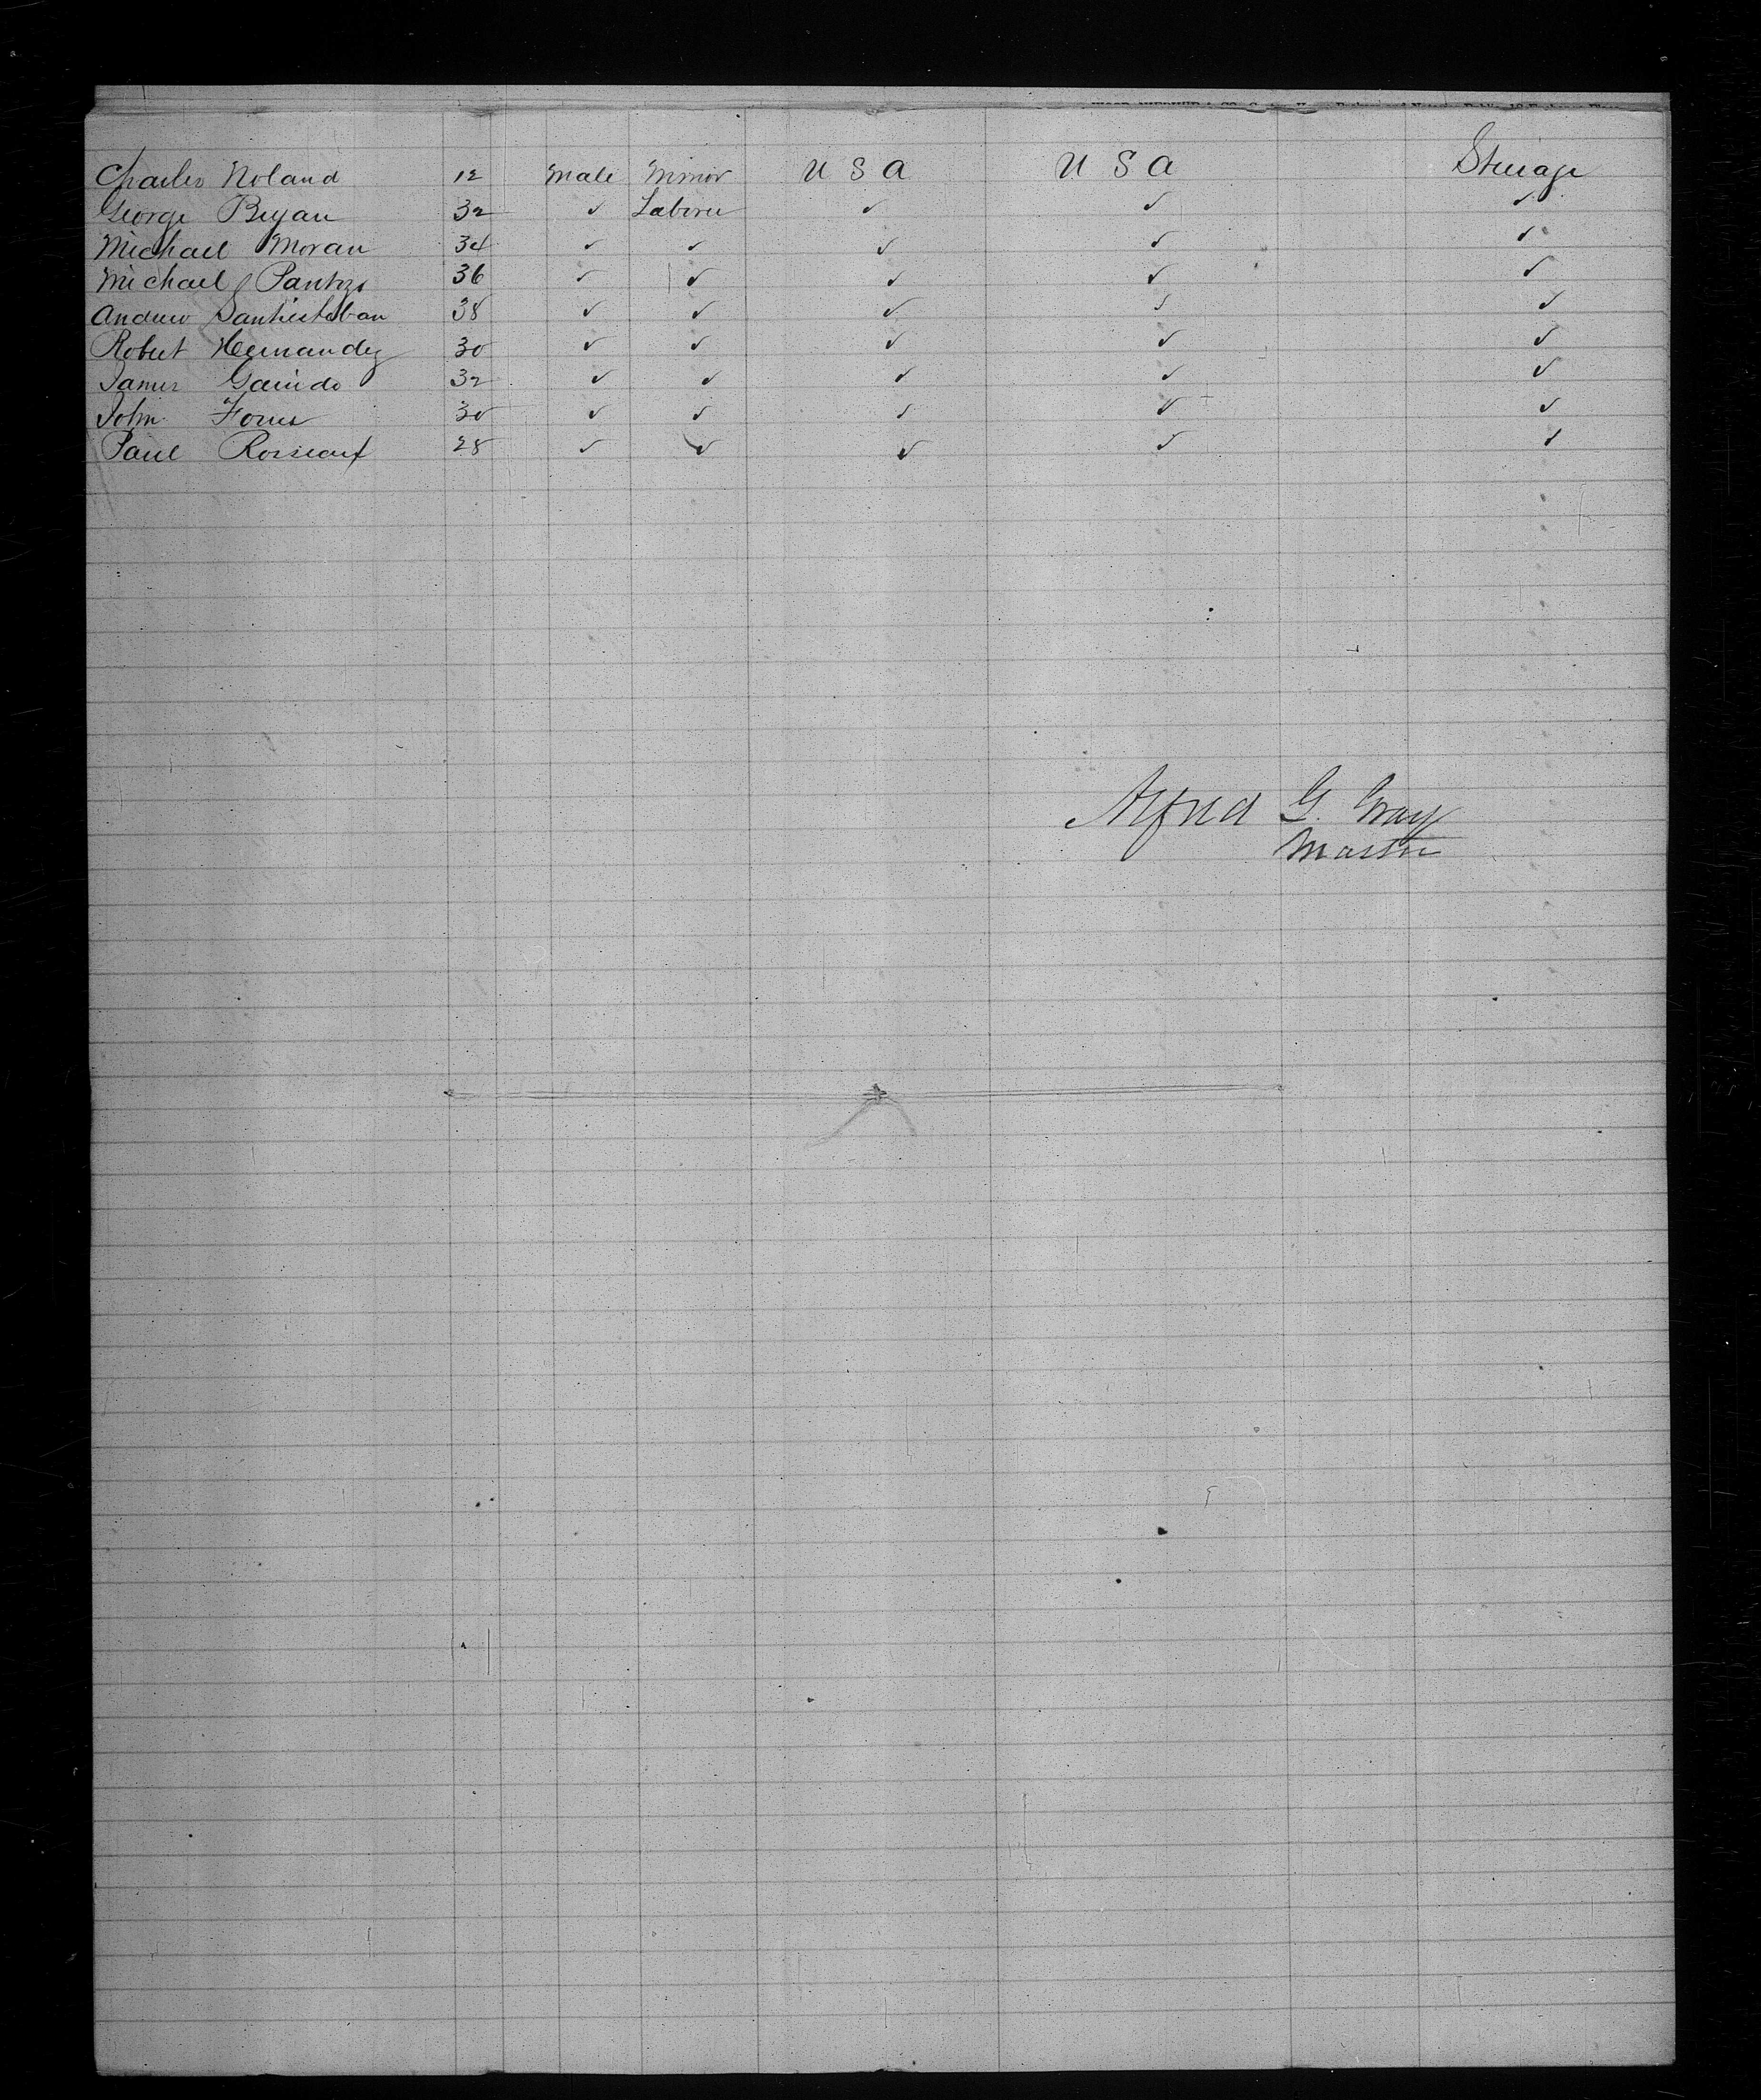 Charles Noland 12 Male Minor U S A U S A Steerage
George Bryan 32 ✓ Laborer ✓ ✓ ✓
Michael Moran 34 ✓ ✓ ✓ ✓ ✓
Michael 36 ✓ ✓ ✓ ✓ ✓
Andrew Santiesteban 38 ✓ ✓ ✓ ✓ ✓
Robert Hernandez 30 ✓ ✓ ✓ ✓ ✓
James 32 ✓ ✓ ✓ ✓ ✓
John 30 ✓ ✓ ✓ ✓ ✓
Paul 28 ✓ ✓ ✓ ✓ ✓
Alfred G. Gray
Master